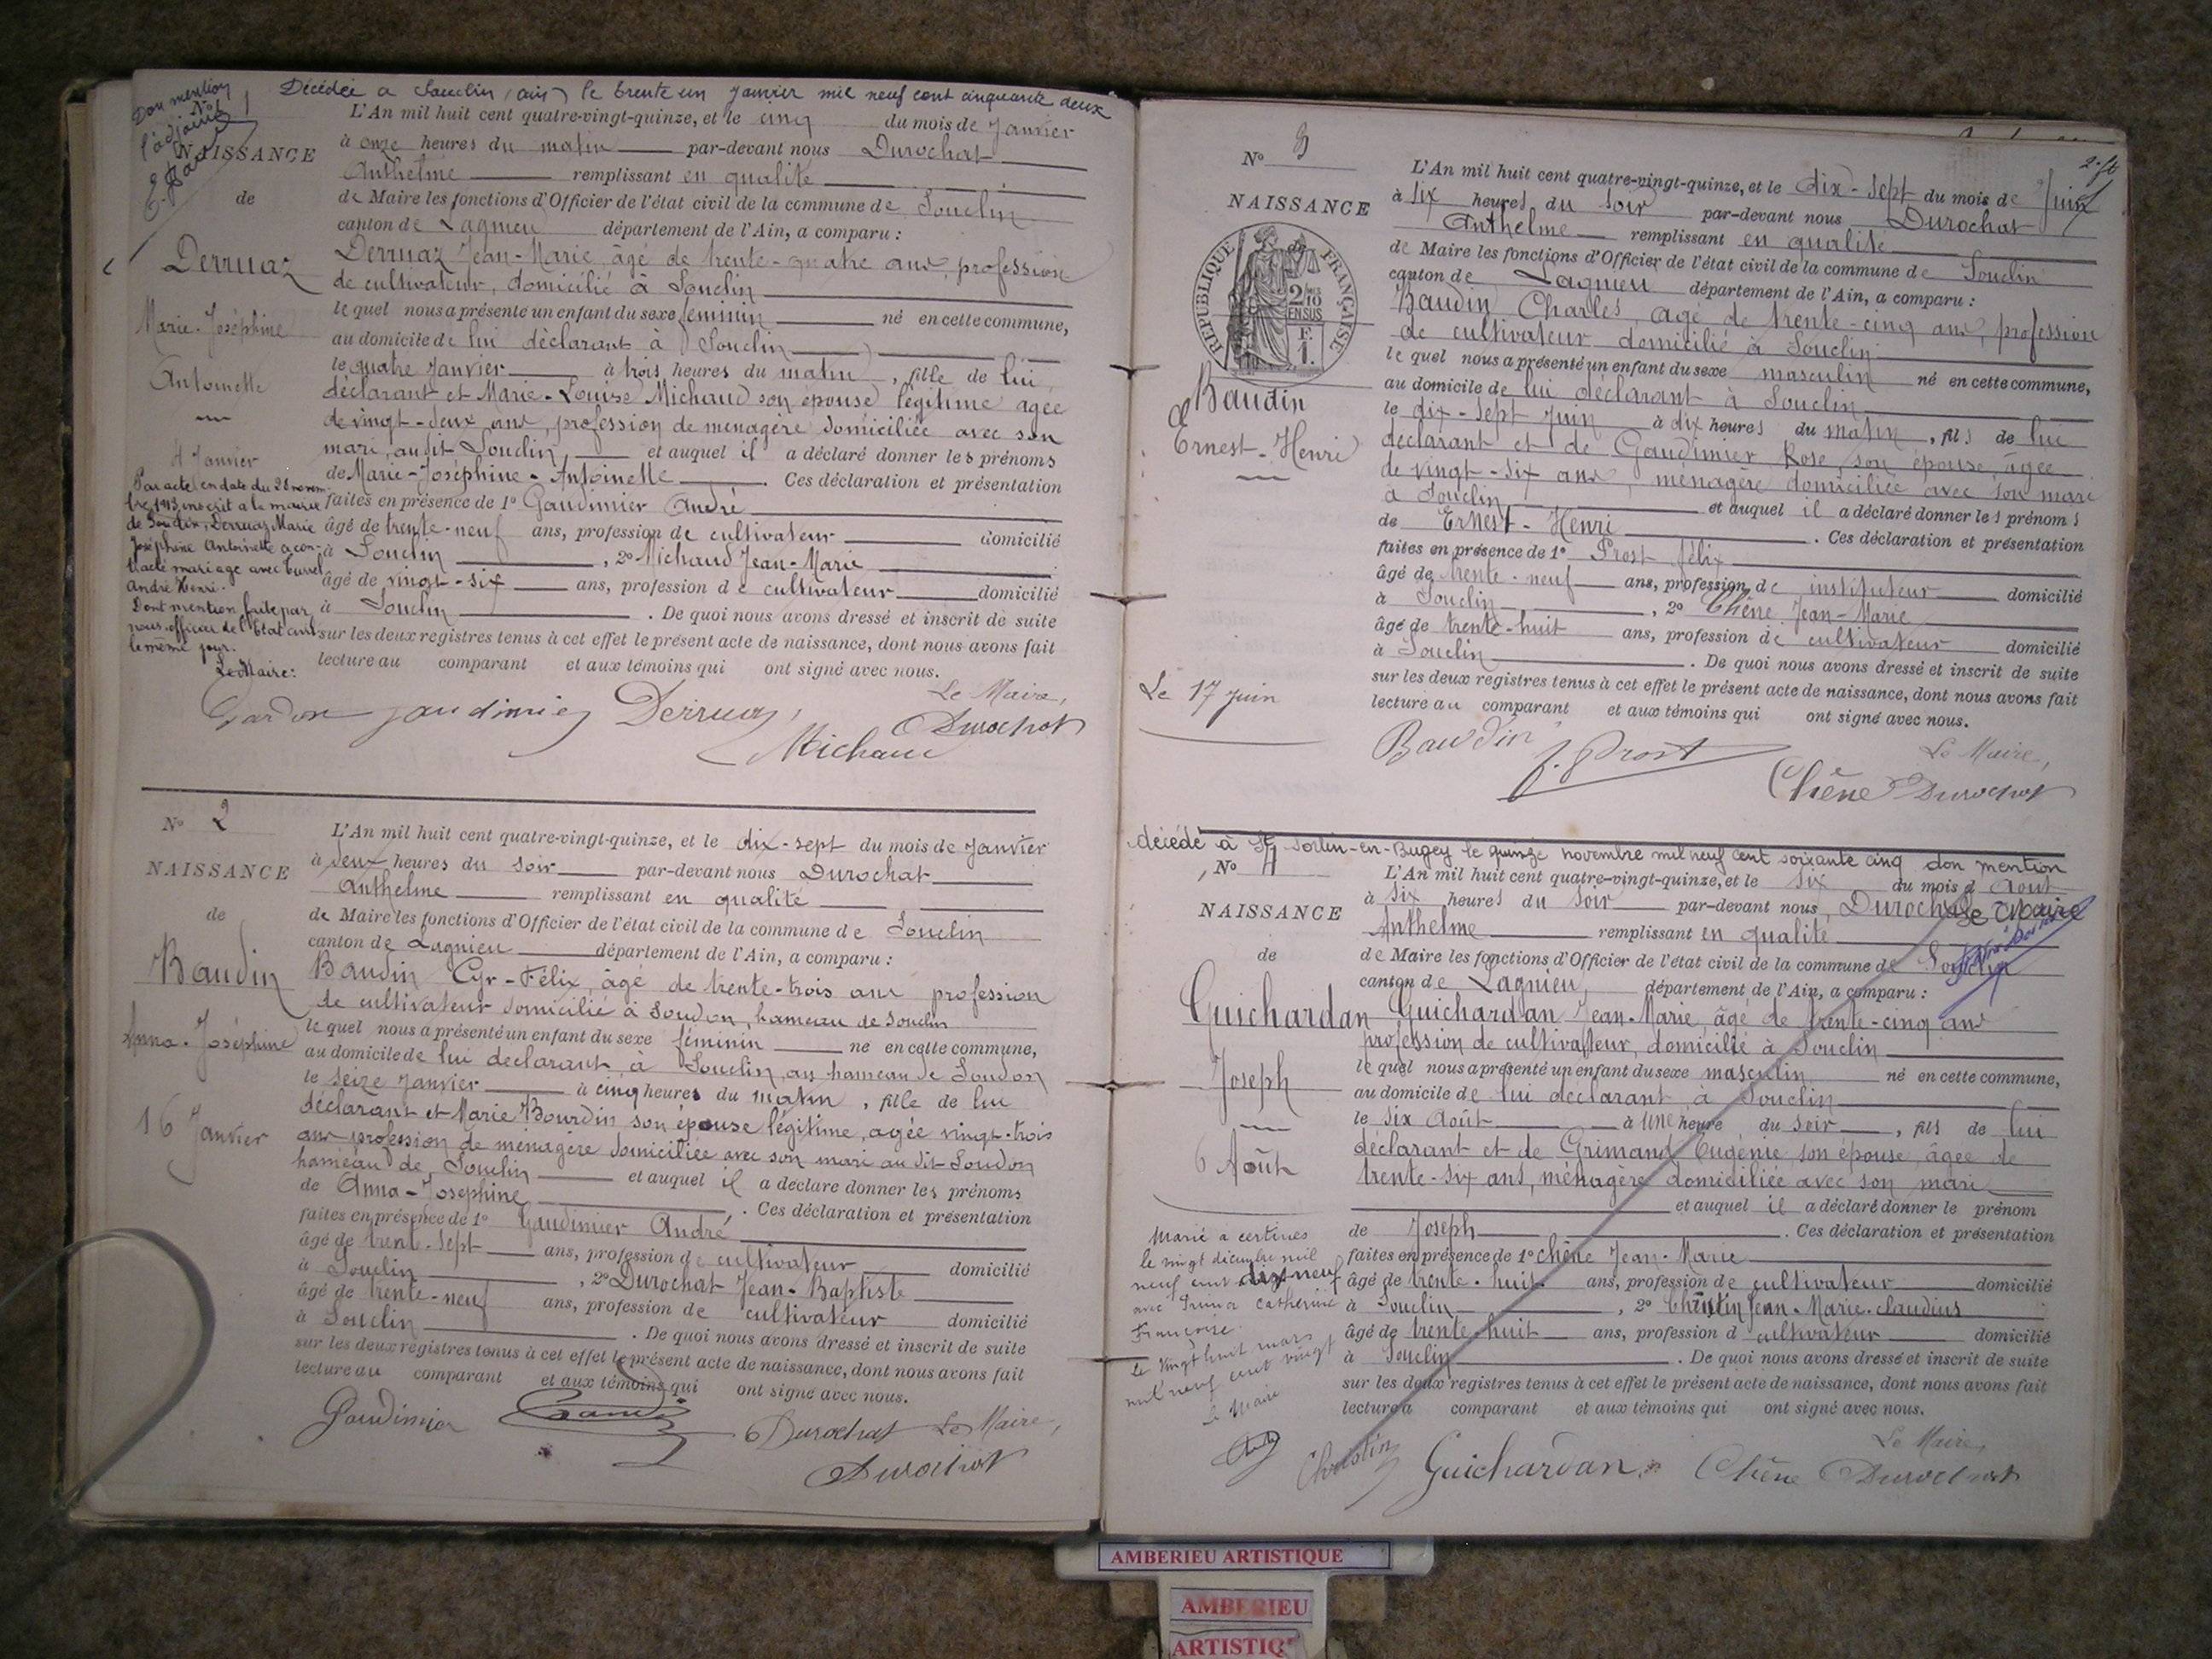 Décédée a Souclin (ain) le trente un janvier mil neuf cent cinquante deux
Don mention
l'adjoint
NAISSANCE
de
Derruaz
Marie-Joséphine
Antoinette
4 Janvier
Par acte en date du 28 novem-
bre 1913, inscrit a la mairie
de Souclin, Derruaz Marie
Joséphine Antoinette a con-
tracté mariage avec
André Henri.
Dont mention faite par
nous officier de l'Etat civil
le même jour.
Le Maire:
L'An mil huit cent quatre-vingt-quinze, et le cinq du mois de Janvier
à onze heures du matin par-devant nous Durochat
Anthelme remplissant en qualité
de Maire les fonctions d'Officier de l'état civil de la commune de Souclin
canton de Lagnieu département de l'Ain, a comparu :
Derruaz Jean-Marie, âgé de trente-quatre ans, profession
de cultivateur, domicilié à Souclin
le quel nous a présenté un enfant du sexe féminin né en cette commune,
au domicile de lui déclarant à Souclin
le quatre Janvier à trois heures du matin, fille de lui
déclarant et Marie-Louise Michaud son épouse légitime agée
de vingt-deux ans, profession de menagère domiciliée avec son
mari, au dit Souclin, et auquel il a déclaré donner les prénoms
de Marie-Joséphine-Antoinette. Ces déclaration et présentation
faites en présence de 1° Gaudimier André
âgé de trente-neuf ans, profession de cultivateur domicilié
à Souclin, 2° Michaud Jean-Marie
âgé de vingt-six ans, profession de cultivateur domicilié
à Souclin. De quoi nous avons dressé et inscrit de suite
sur les deux registres tenus à cet effet le présent acte de naissance, dont nous avons fait
lecture au comparant et aux témoins qui ont signé avec nous.
Le Maire,
Gardon Gaudimier Derruaz Durochat
Michaud
N° 2
NAISSANCE
de
Baudin
Anna-Joséphine
16 Janvier
L'An mil huit cent quatre-vingt-quinze, et le dix-sept du mois de Janvier
à deux heures du soir par-devant nous Durochat
Anthelme remplissant en qualité
de Maire les fonctions d'Officier de l'état civil de la commune de Souclin
canton de Lagnieu département de l'Ain, a comparu :
Baudin Cyr-Félix, âgé de trente-trois ans profession
de cultivateur domicilié à Soudon, hameau de Souclin
le quel nous a présenté un enfant du sexe féminin né en cette commune,
au domicile de lui declarant, à Souclin, au hameau de Soudon
le seize Janvier à cinq heures du matin, fille de lui
déclarant et Marie Bourdin son épouse légitime, agée vingt-trois
ans profession de ménagère domiciliée avec son mari au dit Soudon
hameau de Souclin et auquel il a déclaré donner les prénoms
de Anna-Josephine. Ces déclaration et présentation
faites en présence de 1° Gaudimier André
âgé de trent-sept ans, profession de cultivateur domicilié
à Souclin, 2° Durochat Jean-Baptiste
âgé de trente-neuf ans, profession de cultivateur domicilié
à Souclin. De quoi nous avons dressé et inscrit de suite
sur les deux registres tenus à cet effet le présent acte de naissance, dont nous avons fait
lecture au comparant et aux témoins qui ont signé avec nous.
Gaudimier Baudin Durochat Le Maire,
Durochat
2
N° 3
NAISSANCE
RÉPUBLIQUE FRANÇAISE
2/10 EN SUS
F. 1.
Baudin
Ernest-Henri
Le 17 juin
L'An mil huit cent quatre-vingt-quinze, et le dix-sept du mois de Juin
à six heures du soir par-devant nous Durochat
Anthelme remplissant en qualité
de Maire les fonctions d'Officier de l'état civil de la commune de Souclin
canton de Lagnieu département de l'Ain, a comparu :
Baudin Charles, agé de trente-cinq ans, profession
de cultivateur domicilié à Souclin
le quel nous a présenté un enfant du sexe masculin né en cette commune,
au domicile de lui déclarant à Souclin
le dix-sept Juin à dix heures du matin, fils de lui
déclarant et de Gaudimier Rose, son épouse, âgée
de vingt-six ans, ménagère domiciliée avec son mari
à Souclin et auquel il a déclaré donner les prénoms
de Ernest-Henri. Ces déclaration et présentation
faites en présence de 1° Prost Félix
âgé de trente-neuf ans, profession de instituteur domicilié
à Souclin, 2° Chêne Jean-Marie
âgé de trente-huit ans, profession de cultivateur domicilié
à Souclin. De quoi nous avons dressé et inscrit de suite
sur les deux registres tenus à cet effet le présent acte de naissance, dont nous avons fait
lecture au comparant et aux témoins qui ont signé avec nous.
Baudin F. Prost Le Maire,
Chêne Durochat
décédé à St Sorlin-en-Bugey le quinze novembre mil neuf cent soixante cinq don mention
Le Maire
N° 4
NAISSANCE
de
Guichardan
Joseph
6 Août
Marié a
le vingt décembre mil
neuf cent dix neuf
avec Catherine
Françoise.
Le vingt huit mars
mil neuf cent vingt
Le Maire
L'An mil huit cent quatre-vingt-quinze, et le six du mois d Aout
à six heures du soir par-devant nous, Durochat
Anthelme remplissant en qualité
de Maire les fonctions d'Officier de l'état civil de la commune de Souclin
canton de Lagnieu, département de l'Ain, a comparu :
Guichardan Jean-Marie, âgé de trente-cinq ans
profession de cultivateur, domicilié à Souclin
le quel nous a présenté un enfant du sexe masculin né en cette commune,
au domicile de lui déclarant, à Souclin
le six Août à une heure du soir, fils de lui
déclarant et de Grimand Eugénie, son épouse, âgée de
trente-six ans, ménagère domiciliée avec son mari
et auquel il a déclaré donner le prénom
de Joseph. Ces déclaration et présentation
faites en présence de 1° Chêne Jean-Marie
âgé de trente-huit ans, profession de cultivateur domicilié
à Souclin, 2° Christin Jean-Marie-Claudius
âgé de trente-huit ans, profession d cultivateur domicilié
à Souclin. De quoi nous avons dressé et inscrit de suite
sur les deux registres tenus à cet effet le présent acte de naissance, dont nous avons fait
lecture a comparant et aux témoins qui ont signé avec nous.
Le Maire,
Christin Guichardan Chêne Durochat
AMBERIEU ARTISTIQUE
AMBERIEU
ARTISTIQ